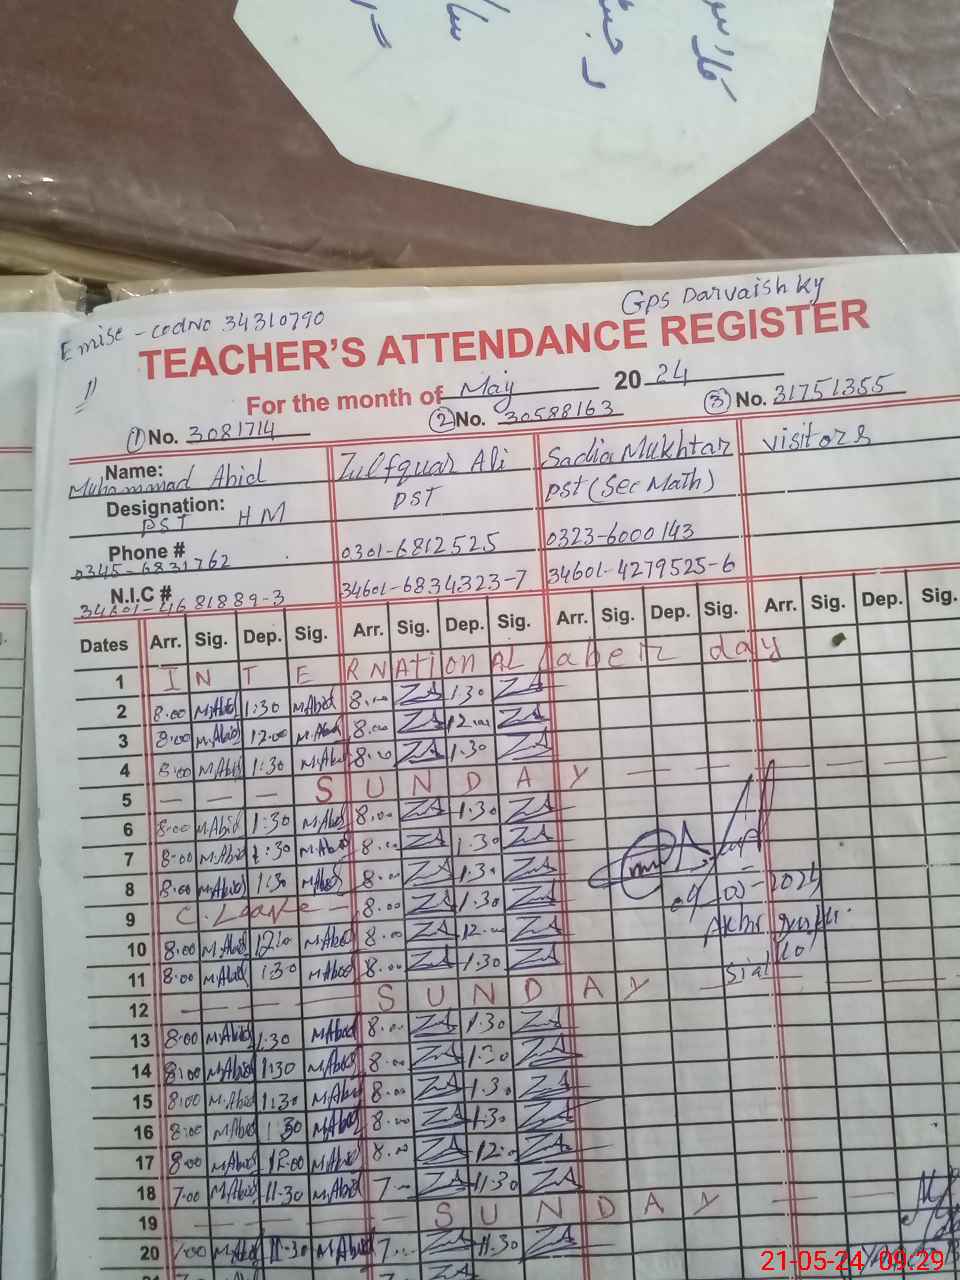 Emise - cod No 34310790
Gps Darvaish ky
TEACHER'S ATTENDANCE REGISTER
11
For the month of May 2024
① No. 3081714 ② No. 30588163 ③ No. 31751355
Name: Muhammad Abid Zulfquar Ali Sadia Mukhtar visitors
Designation: PST HM PST pst (Sec Math)
Phone # 0345-6831762 0301-6812525 0323-6000143
N.I.C # 34601-4681889-3 34601-6834323-7 34601-4279525-6
Dates Arr. Sig. Dep. Sig. Arr. Sig. Dep. Sig. Arr. Sig. Dep. Sig. Arr. Sig. Dep. Sig.
1 INTERNAtionAL laber day
2 8.00 M.Abid 1:30 M.Abid 8.00 ZA 1.30 ZA
3 8:00 M.Abid 12.00 M.Abid 8.00 ZA 12.00 ZA
4 8:00 M.Abid 1:30 M.Abid 8.00 ZA 1.30 ZA
5 SUNDAY
6 8.00 M.Abid 1:30 M.Abid 8.00 ZA 1.30 ZA
7 8.00 M.Abid 1:30 M.Abid 8.00 ZA 1.30 ZA
8 8.00 M.Abid 1:30 M.Abid 8.00 ZA 1.30 ZA
9 C. Leave 8.00 ZA 1.30 ZA
10 8.00 M.Abid M.Abid 8.00 ZA 12.00 ZA
11 8.00 M.Abid 1:30 M.Abid 8.00 ZA 1.30 ZA
12 SUNDAY
13 8.00 M.Abid 1.30 M.Abid 8.00 ZA 1.30 ZA
14 8.00 M.Abid 1:30 M.Abid 8.00 ZA 1.30 ZA
15 8.00 M.Abid 1:30 M.Abid 8.00 ZA 1.30 ZA
16 8.00 M.Abid 1:30 M.Abid 8.00 ZA 1.30 ZA
17 8.00 M.Abid 12.00 M.Abid 8.00 ZA 12.00 ZA
18 7.00 M.Abid 11.30 M.Abid 7.00 ZA 11.30 ZA
19 SUNDAY
20 7.00 M.Abid 11.30 M.Abid 7.00 ZA 11.30 ZA
21
21-05-24 09:29